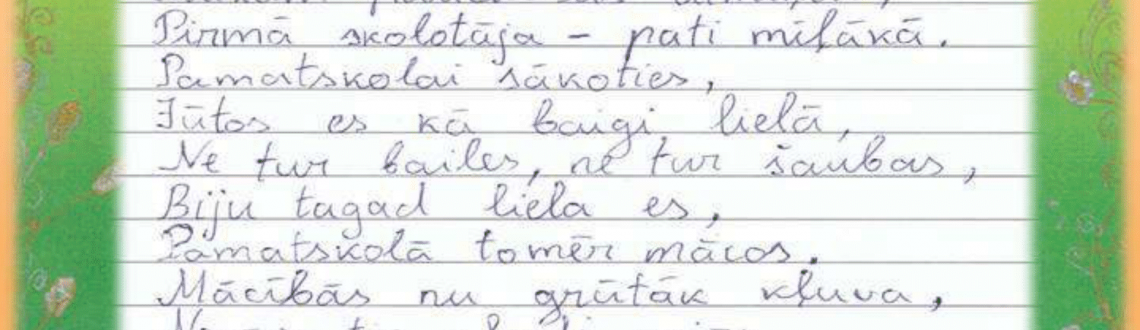 Pirmā skolotāja - pati mīļākā.
Pamatskolai sākoties,
Jūtos es kā baigi lielā,
Ne tur bailes, ne tur šaubas,
Biju tagad liela es,
Pamatskolā tomēr mācos.
Mācībās nu grūtāk kļuva,